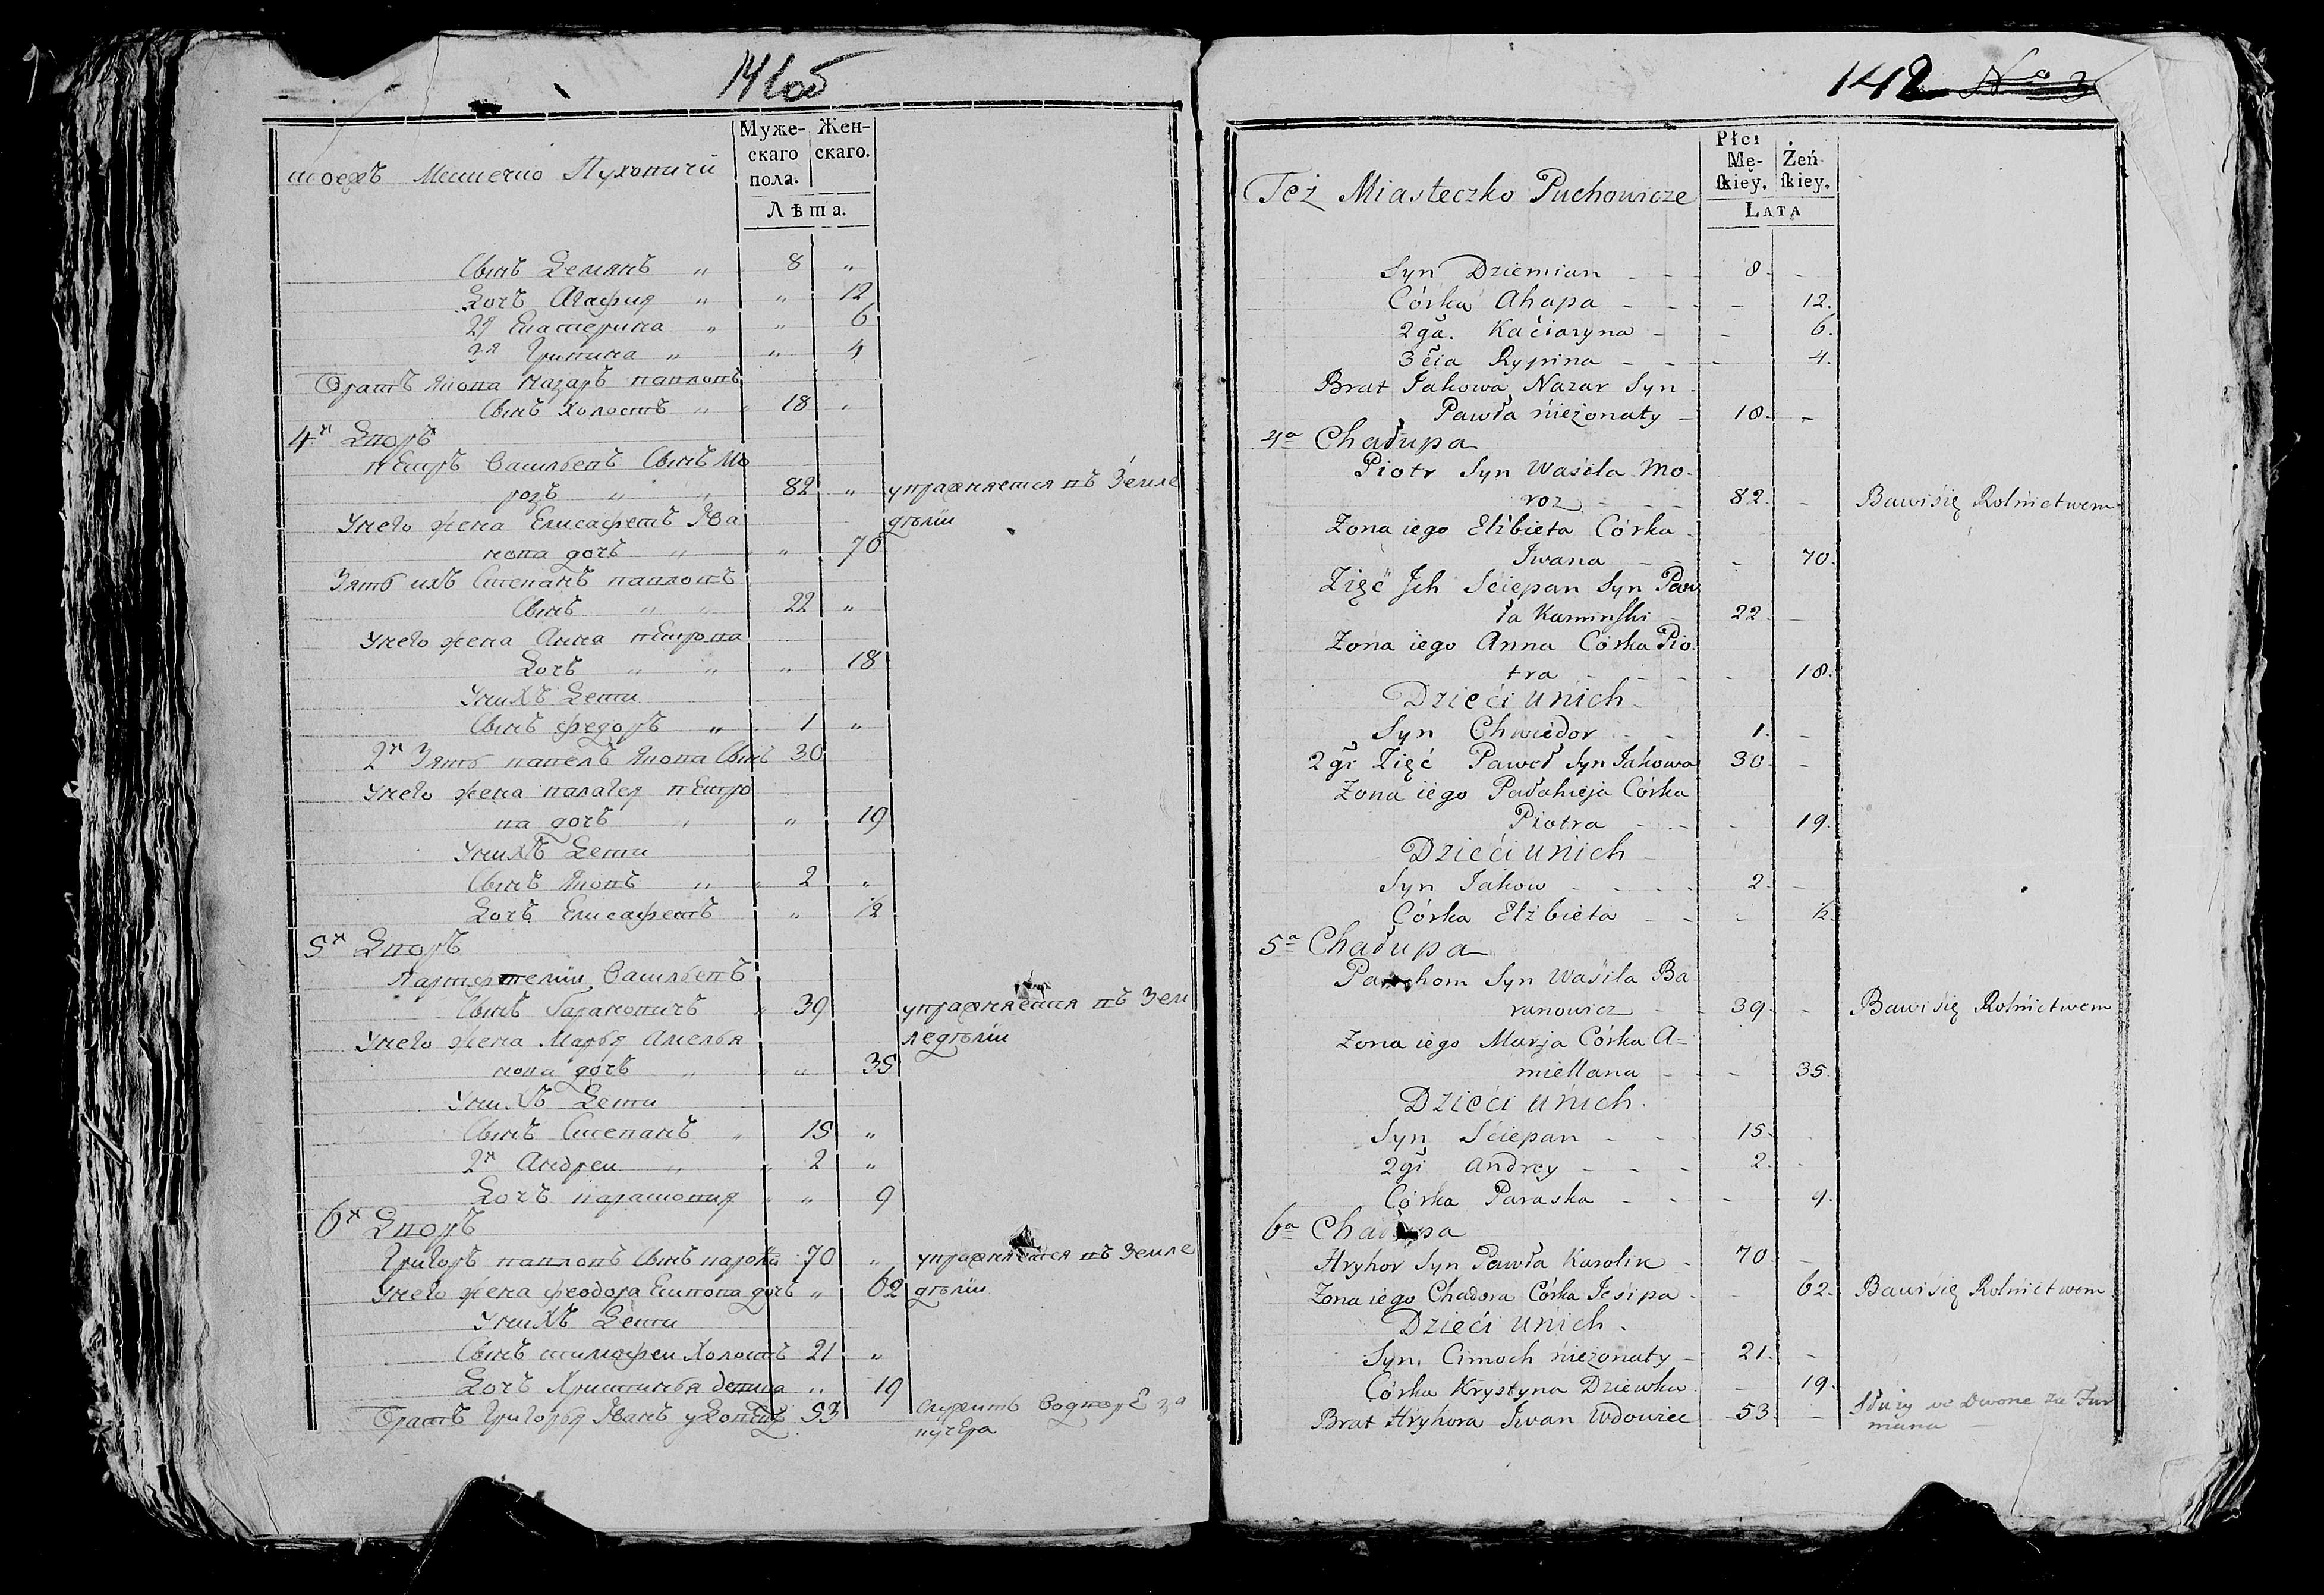 141об
Муже-
скаго
пола.
Жен-
скаго.
Лѣта.
тоежъ Местечко Пуховичи
Сынъ Демянъ „ 8 „
Дочь Агафия „ „ 12
2я Екатерина „ „ 6
3я Грипина „ „ 4
Братъ Якова Назаръ павловъ
Сынъ Холостъ „ „ 18 „
4й Дворъ
петръ Васильевъ Сынъ Мо
розъ „ „ 82 „ упражняется въ Земле
Унего жена Елисафетъ Ива дѣліи
нова дочь „ „ 70
Зять ихъ Степанъ павловъ
Сынъ „ „ 22 „
Унего жена Анна петрова
Дочь „ „ „ 18
Унихъ Дети
Сынъ федоръ „ 1 „
2й Зять павелъ Якова Сынъ 30
Унего жена палагея петро
ва дочь „ „ 19
Унихъ Дети
Сынъ Яковъ „ „ 2 „
Дочь Елисафетъ „ ½
5й Дворъ
Парфтелии Васильевъ
Сынъ Барановичъ „ 39 упражняется въ Зем
Унего жена Марья Амелья ледѣліи
нова дочь „ „ „ 35
Унихъ Дети
Сынъ Степанъ „ 15 „
2й Андреи „ „ 2 „
Дочь парасковия „ „ 9
6й Дворъ
Григоръ павловъ Сынъ 70 „ упражняется въ Земле
Унего жена феодора Есипова дочь „ 62 дѣліи
Унихъ Дети
Сынъ тимофеи Холостъ 21 „
Дочь Христинья девица „ 19
Братъ Григорья Иванъ удовецъ 53 Служитъ Водворѣ за
кучера
142 N° 3
Płci
Mę-
skiey.
Żeń-
skiey.
Lata
Też Miasteczko Puchowicze
Syn Dziemian - - 8. -
Córka Ahapa - - - - 12.
2ga. Kaciaryna - - 6.
3cia Rypina - - - 4.
Brat Jakowa Nazar Syn
Pawła nieżonaty - 18. -
4a Chałupa
Piotr Syn Wasila Mo-
roz - - - 82. - Bawi się Rolnictwem
Zona iego Elżbieta Córka
Iwana - - 70.
Zięć Jch Sciepan Syn Paw
ła Kaminski - 22. -
Zona iego Anna Córka Pio
tra - - - - 18.
Dzieci unich
Syn Chwiedor - - 1. -
2gi Zięć Paweł Syn Jakowa 30. -
Zona iego Pałahieja Córka
Piotra - - - 19.
Dzieci unich
Syn Jakow - - - 2. -
Córka Elżbieta - - - ½.
5a Chałupa
Parchom Syn Wasila Ba
ranowicz - - 39. - Bawi się Rolnictwem
Zona iego Marja Córka A-
miellana - - - 35.
Dzieci unich.
Syn Sciepan - - 15. -
2gi Andrey - - - 2. -
Córka Paraska - - - 9.
6a Chałupa
Hryhor Syn Pawła Karolik - 70. -
Zona iego Chadora Córka Jesipa - - 62. Bawi się Rolnictwem
Dzieci unich.
Syn Cimoch nieżonaty - 21. -
Córka Krystyna Dziewka - - 19.
Brat Hryhora Iwan Wdowiec - 53. - Służy we Dworze za Fur
mana